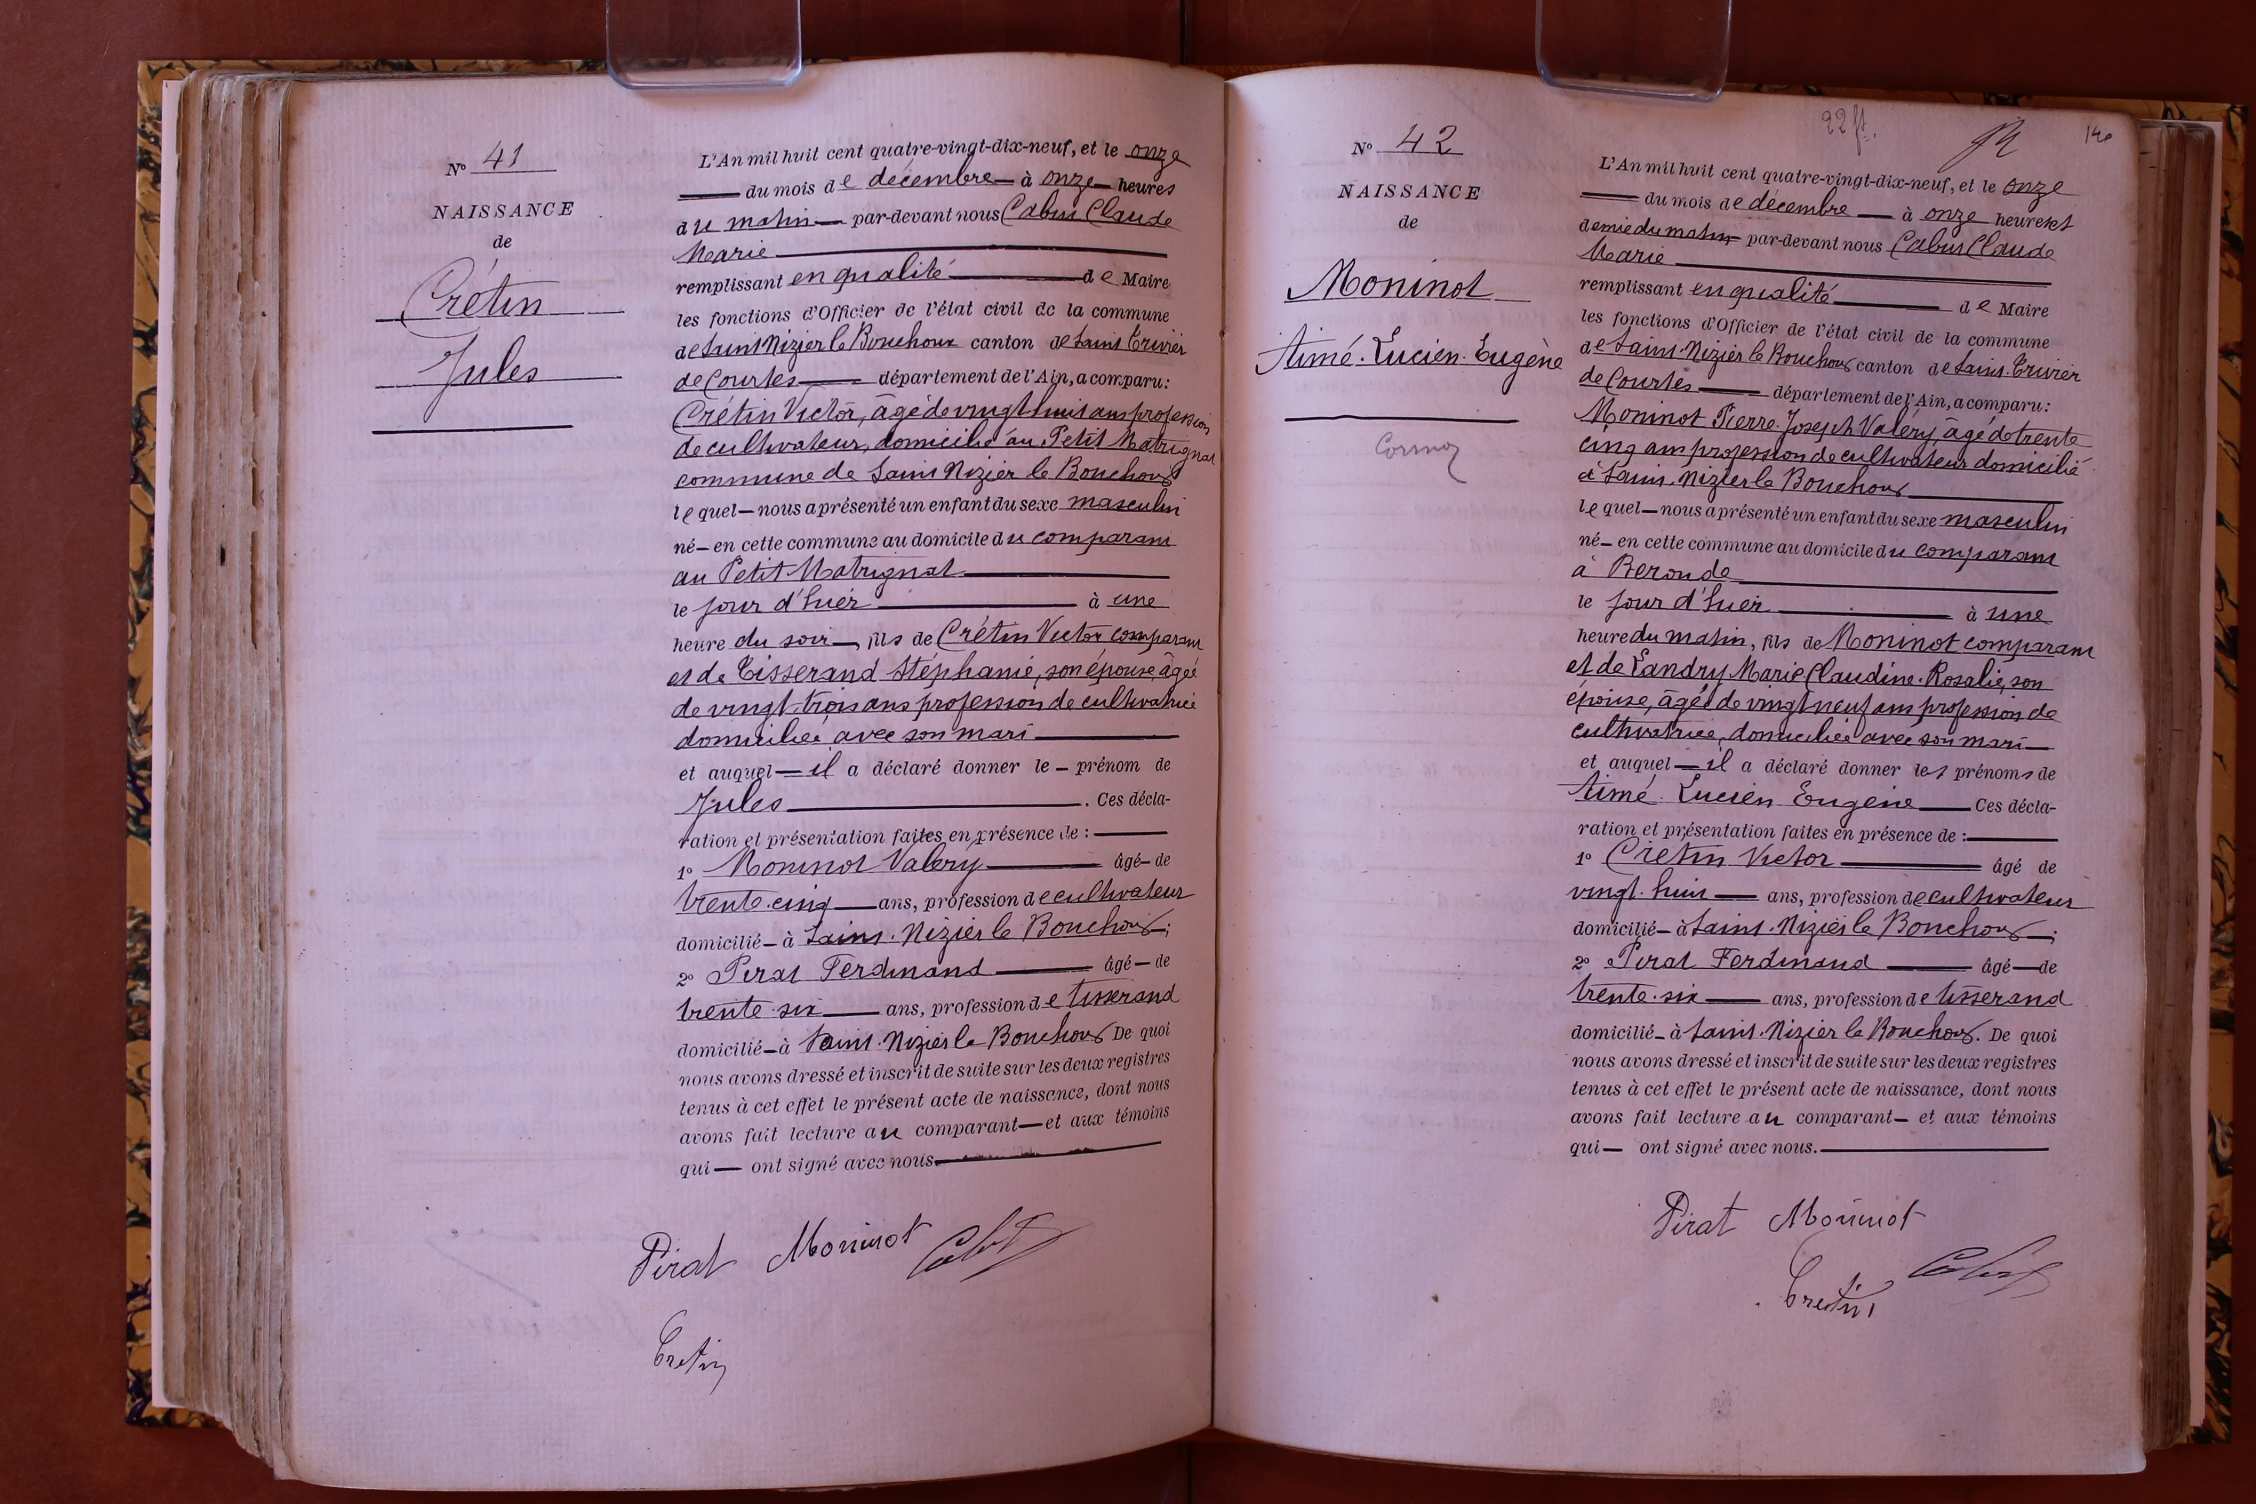 N° 41
NAISSANCE
de
Crétin
Jules
L'An mil huit cent quatre-vingt-dix-neuf, et le onze
du mois de décembre à onze heures
du matin par-devant nous Claude
Marie
remplissant en qualité de Maire
les fonctions d'Officier de l'état civil de la commune
de Saint Nizier le Bouchoux canton de Saint Trivier
de Courtes département de l'Ain, a comparu:
Crétin Victor, âgé de vingt huit ans profession
de cultivateur, domicilié au Petit Matrignat
commune de Saint Nizier le Bouchoux
lequel nous a présenté un enfant du sexe masculin
né en cette commune au domicile du comparant
au Petit Matrignat
le jour d'hier à une
heure du soir, fils de Crétin Victor comparant
et de Tisserand Stéphanie, son épouse, âgée
de vingt-trois ans profession de cultivatrice
domiciliée avec son mari
et auquel il a déclaré donner le prénom de
Jules. Ces décla-
ration et présentation faites en présence de :
1° Moninot Valery âgé de
trente-cinq ans, profession de cultivateur
domicilié à Saint-Nizier le Bouchoux;
2° Pirat Ferdinand âgé de
trente-six ans, profession de tisserand
domicilié à Saint-Nizier le Bouchoux De quoi
nous avons dressé et inscrit de suite sur les deux registres
tenus à cet effet le présent acte de naissance, dont nous
avons fait lecture au comparant et aux témoins
qui ont signé avec nous.
Pirat Moninot
Cretin
22 ft.
140
N° 42
NAISSANCE
de
Moninot
Aimé-Lucien-Eugène
Cormoz
L'An mil huit cent quatre-vingt-dix-neuf, et le onze
du mois de décembre à onze heures et
demie du matin par-devant nous Claude
Marie
remplissant en qualité de Maire
les fonctions d'Officier de l'état civil de la commune
de Saint-Nizier le Bouchoux canton de Saint-Trivier
de Courtes département de l'Ain, a comparu:
Moninot Pierre-Joseph Valéry, âgé de trente
cinq ans profession de cultivateur domicilié
à Saint-Nizier le Bouchoux
lequel nous a présenté un enfant du sexe masculin
né en cette commune au domicile du comparant
à Beronde
le jour d'hier à une
heure du matin, fils de Moninot comparant
et de Landry Marie Claudine-Rosalie, son
épouse, âgée de vingt neuf ans profession de
cultivatrice, domiciliée avec son mari
et auquel il a déclaré donner les prénoms de
Aimé Lucien Eugène Ces décla-
ration et présentation faites en présence de :
1° Crétin Victor âgé de
vingt-huit ans, profession de cultivateur
domicilié à Saint-Nizier le Bouchoux;
2° Pirat Ferdinand âgé de
trente-six ans, profession de tisserand
domicilié à Saint-Nizier le Bouchoux. De quoi
nous avons dressé et inscrit de suite sur les deux registres
tenus à cet effet le présent acte de naissance, dont nous
avons fait lecture au comparant et aux témoins
qui ont signé avec nous.
Pirat Moninot
Cretin